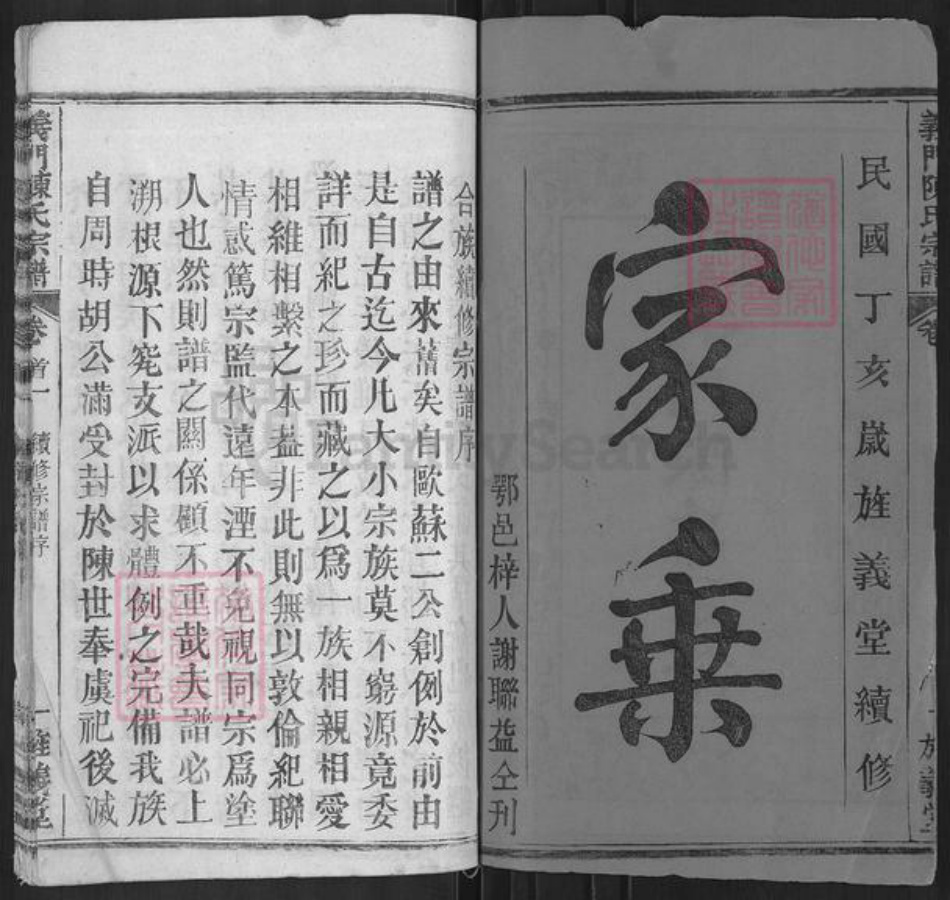 義門陳氏宗譜
卷
旌義堂
民國丁亥歲旌義堂續修
家乘
鄂邑梓人謝聯益仝刊
合族續修宗譜序
譜之由來舊矣自歐蘇二公創例於前由
是自古迄今凡大小宗族莫不窮源竟委
詳而紀之珍而藏之以爲一族相親相愛
相維相繫之本葢非此則無以敦倫紀聯
情感篤宗盟代遠年湮不免視同宗爲塗
人也然則譜之關係顧不重哉夫譜必上
溯根源下究支派以求體例之完備我族
自周時胡公滿受封於陳世奉虞祀後滅
義門陳氏宗譜
卷首一
續修宗譜序
一
旌義堂
FamilySearch